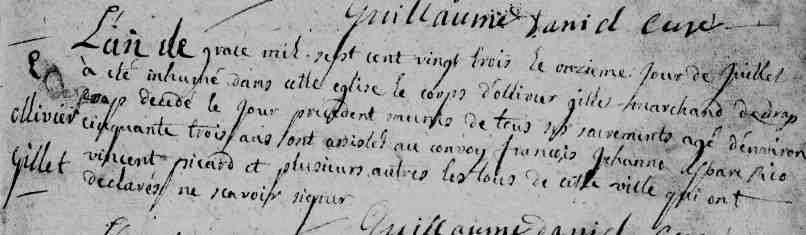 Guillaume Daniel Curé
L'an de grace mil sept cent vingt trois le onzieme jour de juillet
à eté inhumé dans cette eglise le corps d'ollivier gillet marchand de drap
decedé le jour precedent munis de tous ses sacrements agé d'environ
cinquante trois ans ont assistés au convoy françois Jehanne
vincent picard et plusieurs autres les tous de cette ville qui ont
declarés ne scavoir signer
ollivier
Gillet
Guillaume daniel